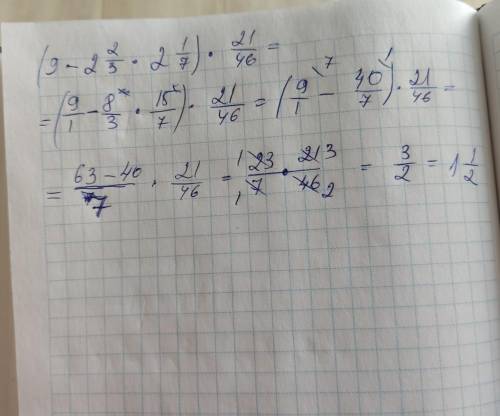 (9 - 2 2/3 · 2 1/7) · 21/46 =
= (9/1 - 8/3 · 15/7) · 21/46 = (9/1 - 40/7) · 21/46 =
= (63 - 40)/7 · 21/46 = 23/7 · 21/46 = 3/2 = 1 1/2